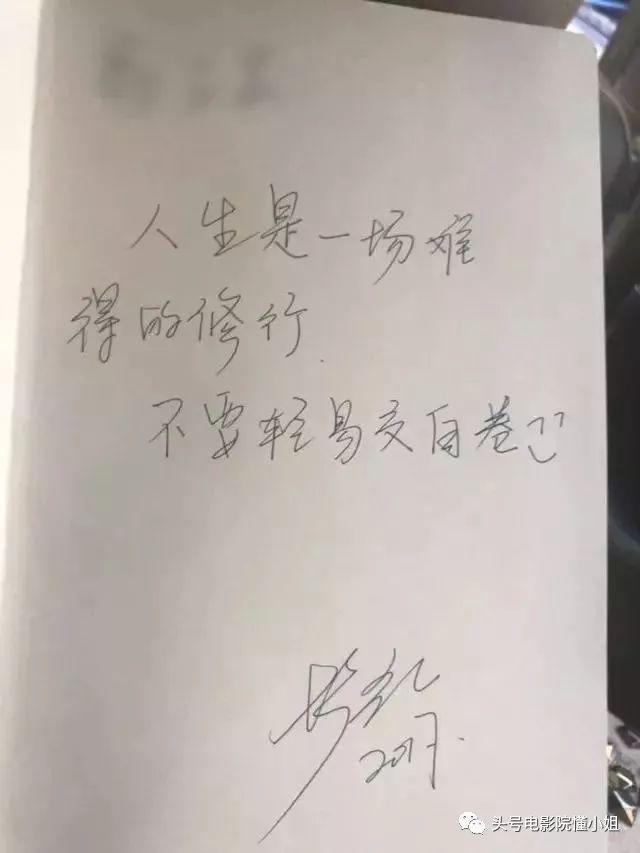 人生是一场难
得的修行.
不要轻易交白卷
2017.
头号电影院懂小姐